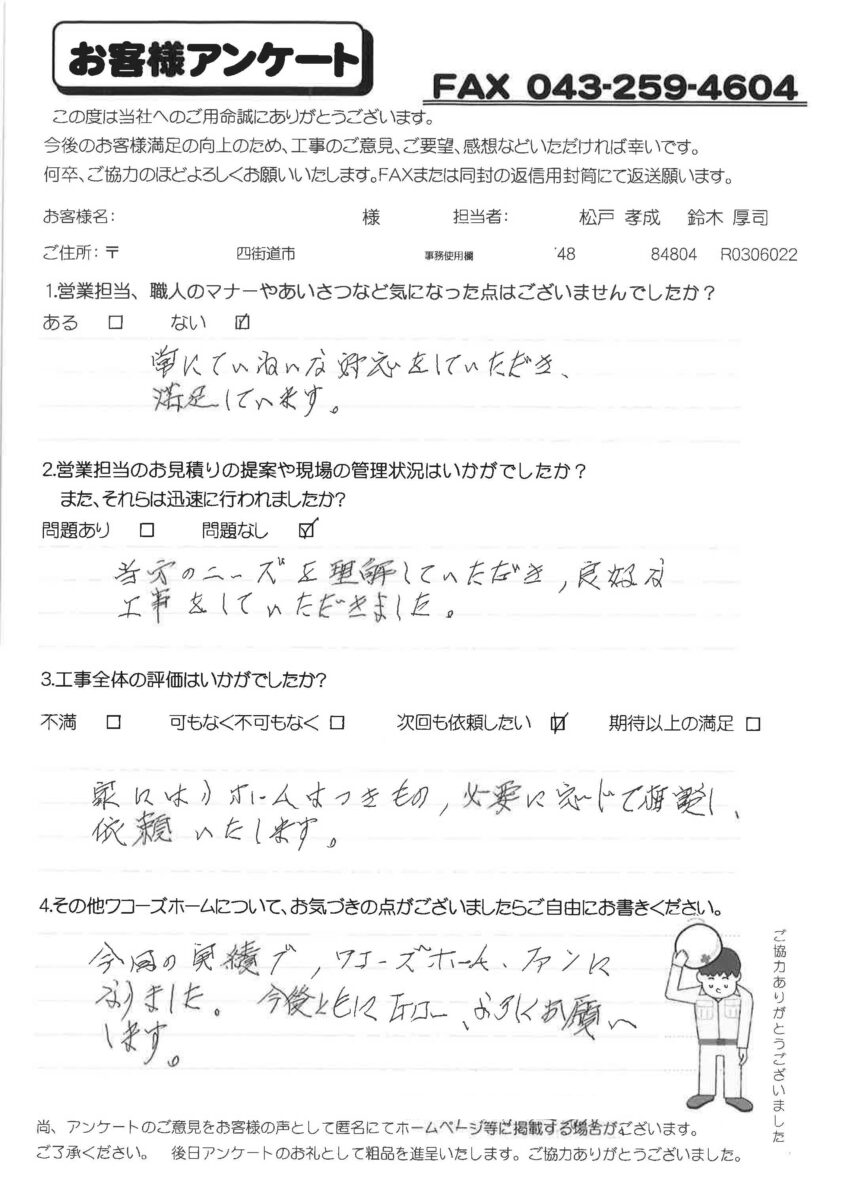 お客様アンケート
FAX 043-259-4604
この度は当社へのご用命誠にありがとうございます。
今後のお客様満足の向上のため、工事のご意見、ご要望、感想などいただければ幸いです。
何卒、ご協力のほどよろしくお願いいたします。FAXまたは同封の返信用封筒にて返送願います。
お客様名： 様 担当者： 松戸 孝成 鈴木 厚司
ご住所：〒 四街道市 事務使用欄 '48 84804 R0306022
1.営業担当、職人のマナーやあいさつなど気になった点はございませんでしたか？
ある □ ない ☑
常にていねいな対応をしていただき、
満足しています。
2.営業担当のお見積りの提案や現場の管理状況はいかがでしたか？
また、それらは迅速に行われましたか?
問題あり □ 問題なし ☑
当方のニーズを理解していただき，良好な
工事をしていただきました。
3.工事全体の評価はいかがでしたか?
不満 □ 可もなく不可もなく □ 次回も依頼したい ☑ 期待以上の満足 □
家にはリホームはつきもの，必要に応じて相談し、
依頼いたします。
4.その他ワコーズホームについて、お気づきの点がございましたらご自由にお書きください。
今回の実績で，ワコーズホーム、ファンに
なりました。 今後ともに よろしくお願い
します。
ご協力ありがとうございました
尚、アンケートのご意見をお客様の声として匿名にてホームページ等に掲載する場合がございます。
ご了承ください。 後日アンケートのお礼として粗品を進呈いたします。ご協力ありがとうございました。